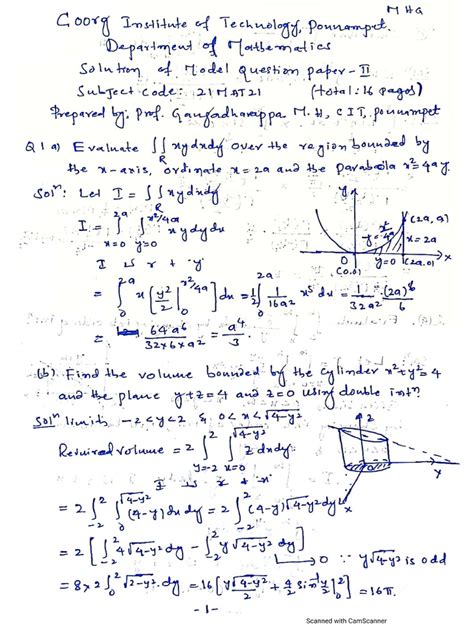 MHG
Coorg Institute of Technology, Ponnampet.
Department of Mathematics
Solution of Model question paper - II
Subject code: 21MAT21 (total: 16 pages)
Prepared by: Prof. Gangadharappa M.H, CIT, Ponnampet
Q1 a) Evaluate ∬_R xy dx dy over the region bounded by
the x-axis, ordinate x=2a and the parabola x²=4ay.
Solⁿ: Let I = ∬_R xy dx dy
I = ∫_{x=0}^{2a} ∫_{y=0}^{x²/4a} xy dy dx
I is r t 'y'
= ∫_0^{2a} x [y²/2 |_0^{x²/4a}] dx = 1/2 ∫_0^{2a} 1/16a² x⁵ dx = 1/32a² · (2a)⁶/6
= 64a⁶/32×6×a² = a⁴/3.
y
y = x²/4a
(2a, a)
x=2a
O
(0,0)
y=0
(2a,0)
x
(b) Find the volume bounded by the cylinder x²+y²=4
and the plane y+z=4 and z=0 using double intⁿ
Solⁿ limits -2<y<2 & 0<x<√4-y²
Required volume = 2 ∫_{y=-2}^{2} ∫_{x=0}^{√4-y²} z dx dy
I is r t 'x'
= 2 ∫_{-2}^{2} ∫_0^{√4-y²} (4-y) dx dy = 2 ∫_{-2}^{2} (4-y) √4-y² dy
= 2 [∫_{-2}^{2} 4√4-y² dy - ∫_{-2}^{2} y√4-y² dy]
→ 0 ∵ y√4-y² is odd
= 8×2 ∫_0^2 √2-y² · dy = 16 [y√4-y²/2 + 4/2 sin⁻¹ y/2 |_0^2] = 16π.
z
y
x
-1-
Scanned with CamScanner